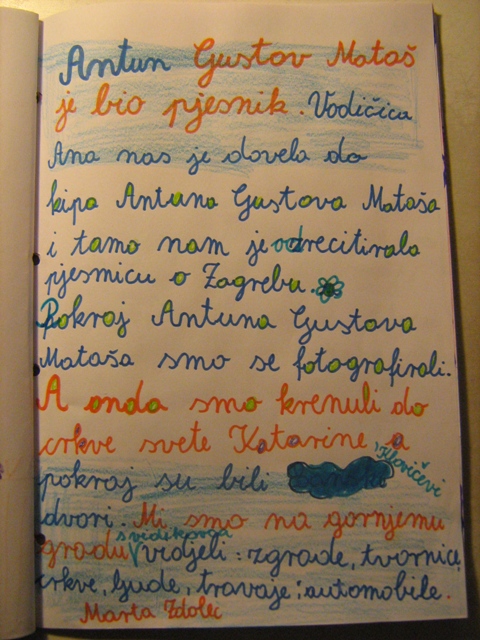 Antun Gustov Mataš
je bio pjesnik. Vodičica
Ana nas je dovela do
kipa Antuna Gustova Mataša
i tamo nam je odrecitirala
pjesmicu o Zagrebu.
Pokraj Antuna Gustova
Mataša smo se fotografirali.
A onda smo krenuli do
crkve svete Katarine a
pokraj su bili Klovićevi
dvori. Mi smo na gornjemu
gradu vidjeli: zgrade, tvornice,
crkve, ljude, travaje i automobile.
Marta Zdolec